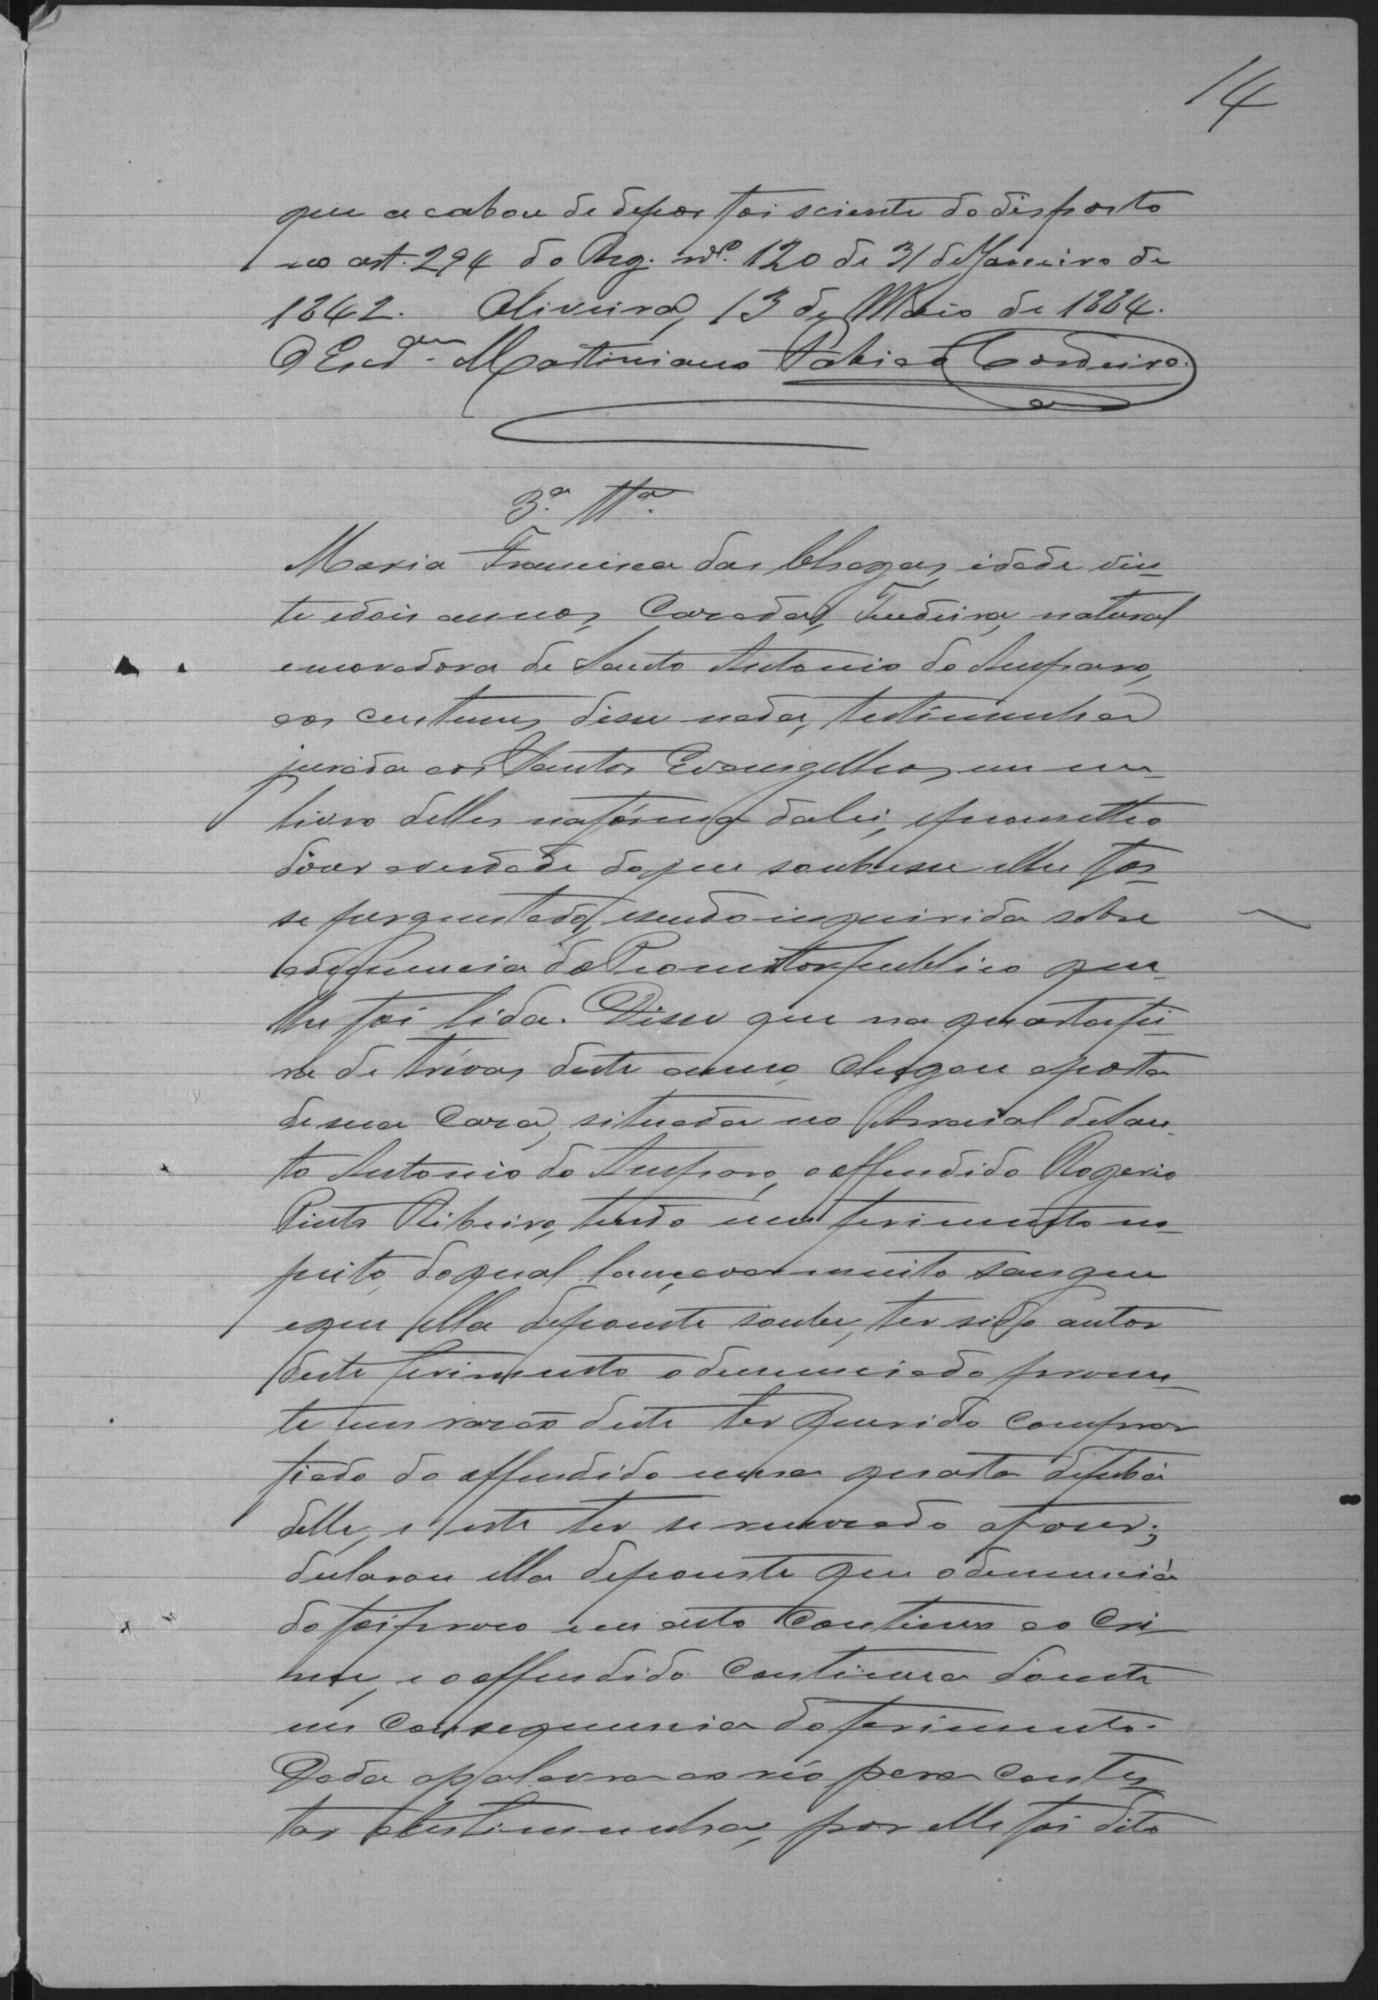 14
que acabou de depor foi sciente do disposto
no art. 294 do Reg. nº. 120 de 31 de Janeiro de
1842. Oliveira, 13 de Maio de 1884.
O Escram. Martiniano Fabião Cordeiro.
3.ª Ttª.
Maria Francisca das Chagas, idade vin-
te e dois annos, Casada, natural
e moradora de Santo Antonio do Amparo,
aos custumes disse nada, testimunha
jurada aos Santos Evangelhos em um
livro delles na fórma da lei, e prometteo
dizer a verdade do que soubesse e lhe fos-
se perguntado, e sendo inquirida sobre
a denuncia do Promotor publico que
lhe foi lida. Disse que na quarta fei-
ra de trévas deste anno, chegou a porta
de sua Casa, situada no Arraial de San-
to Antonio do Amparo, o offendido Rogerio
Pinto Ribeiro, tendo um ferimento no
peito, do qual lançava muito sangue
e que ella depoente soube, ter sido autor
deste ferimento o denunciado prezen-
te em razão deste ter querido comprar
fiado do offendido uma quarta de fubá
delle, e este ter se recusado a fazer;
declarou ella depoente que o denuncia-
do foi prezo em acto continuo ao Cri-
me, e o offendido continua doente
em consequencia do ferimento.
Dada a palavra ao réo para contes-
tar a testimunha, por elle foi dito